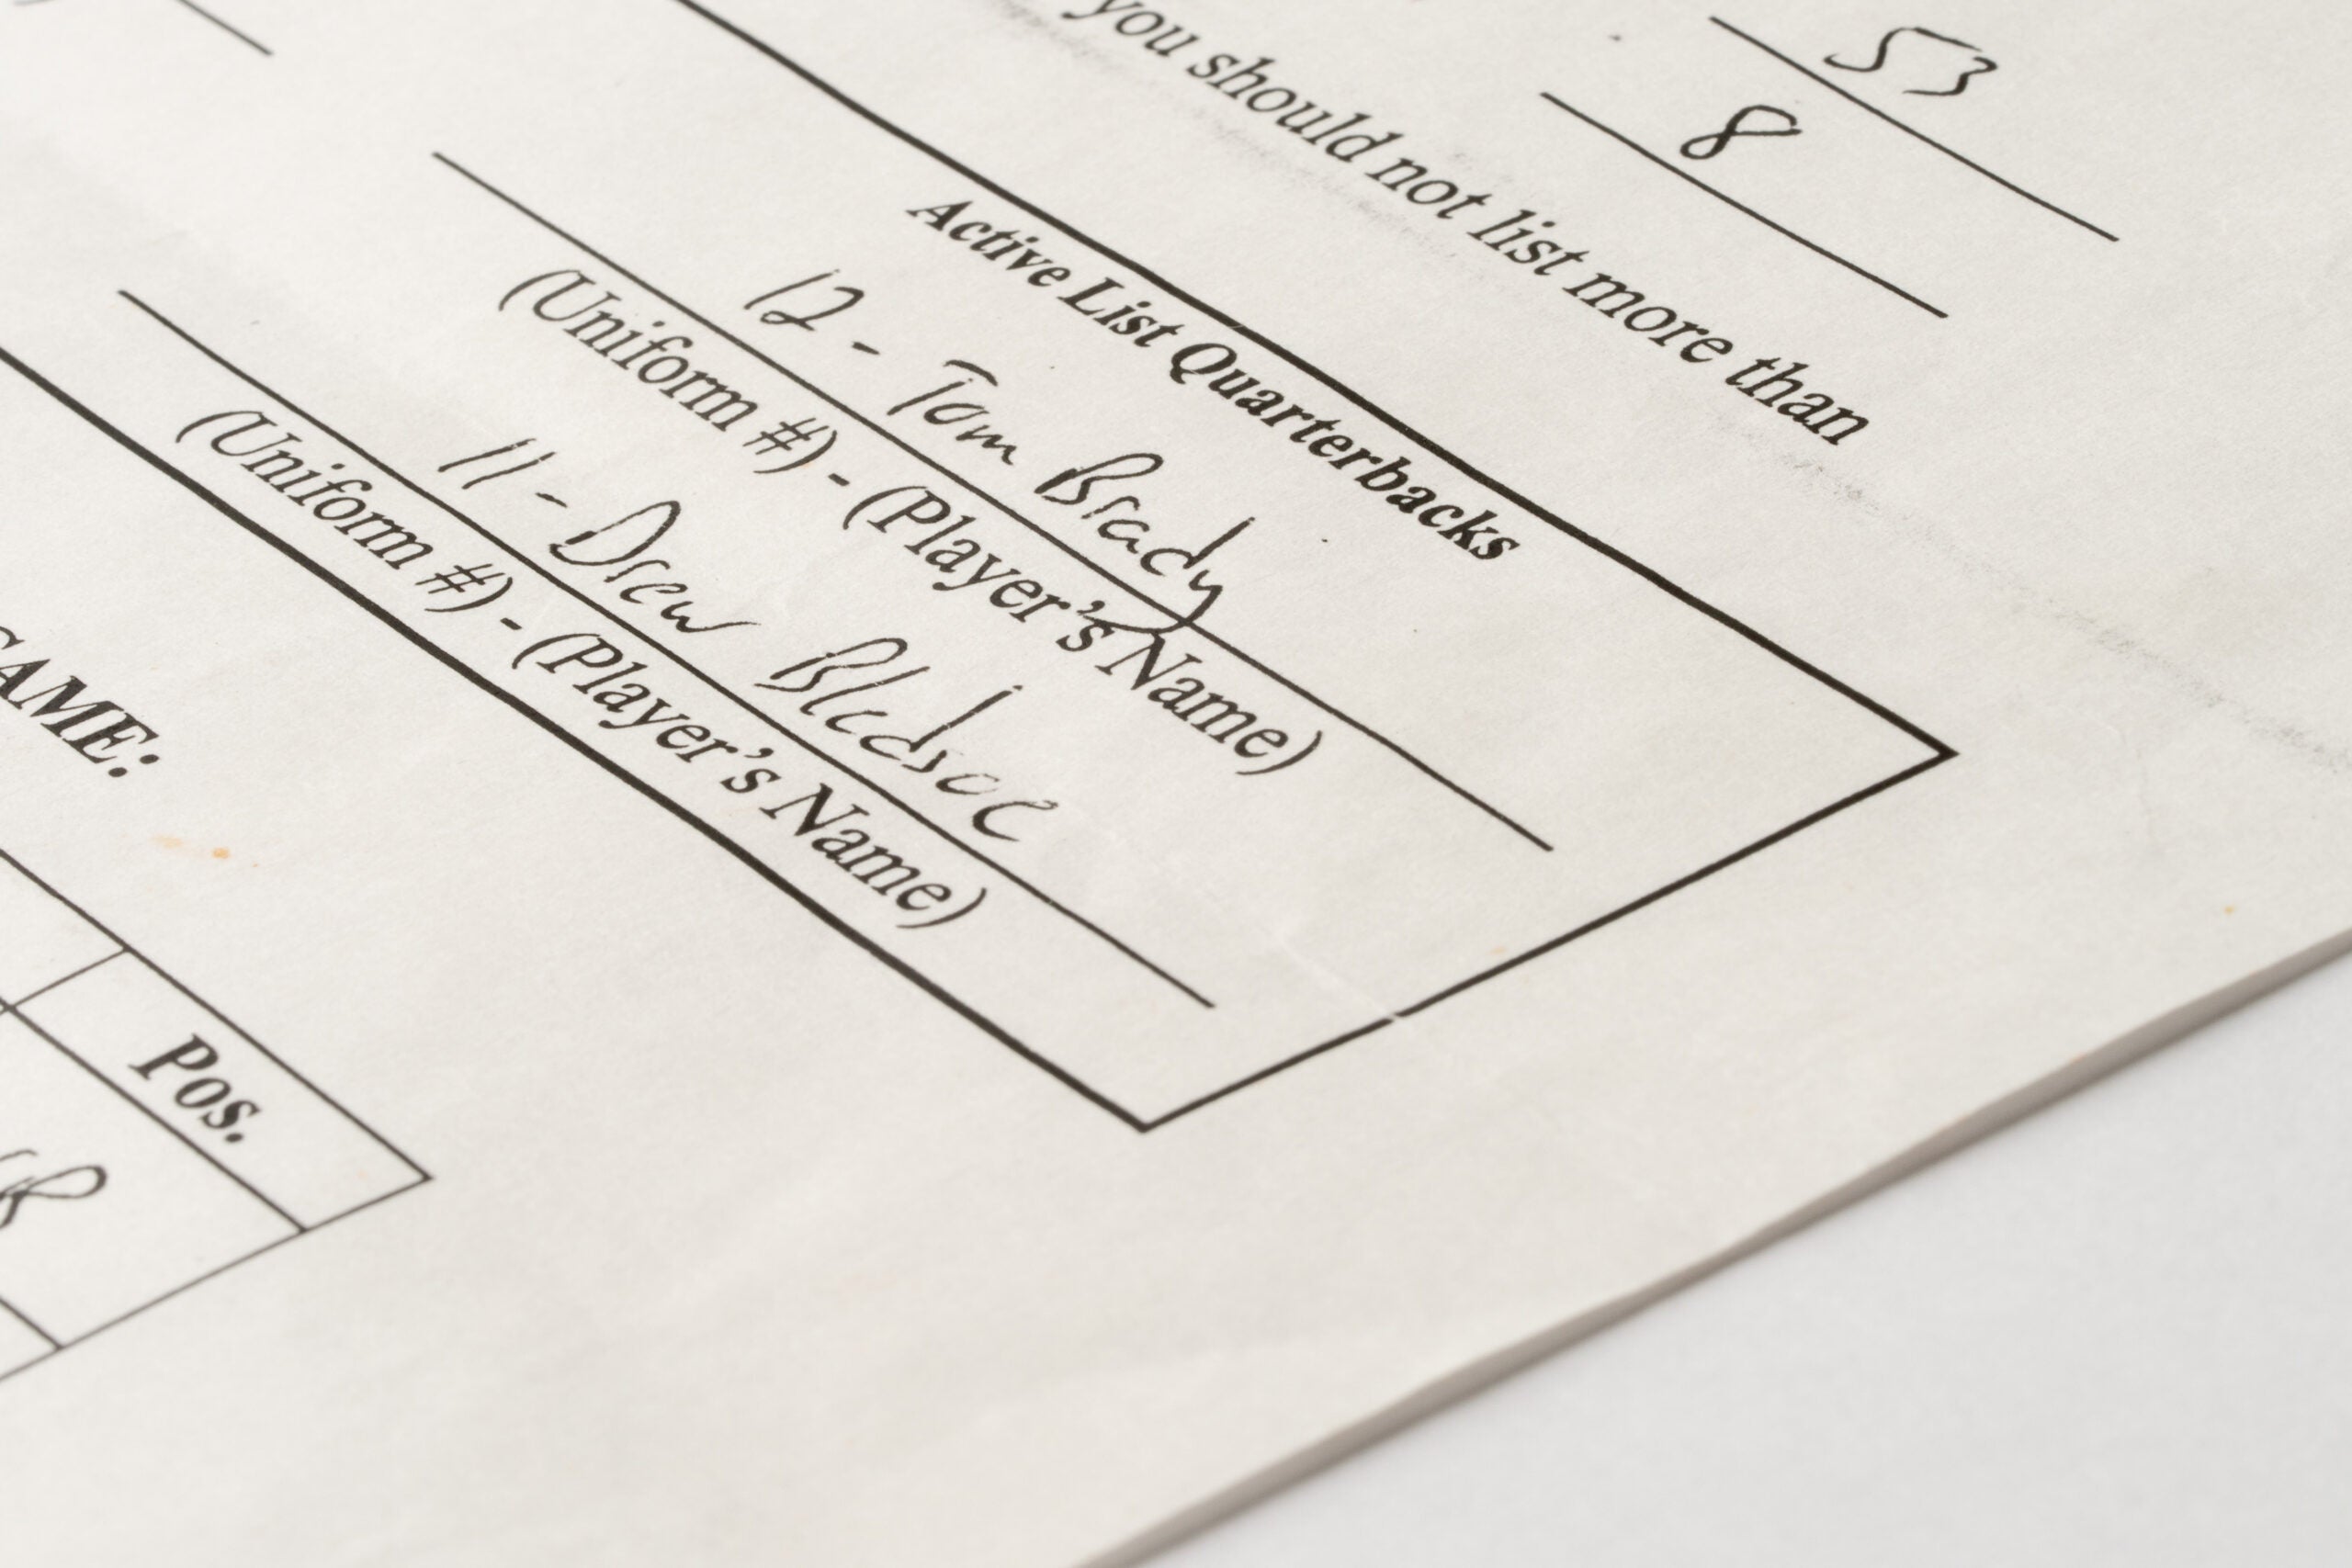 53
8
you should not list more than
Active List Quarterbacks
12 - Tom Brady
(Uniform #) - (Player's Name)
11 - Drew Bledsoe
(Uniform #) - (Player's Name)
AME:
Pos.